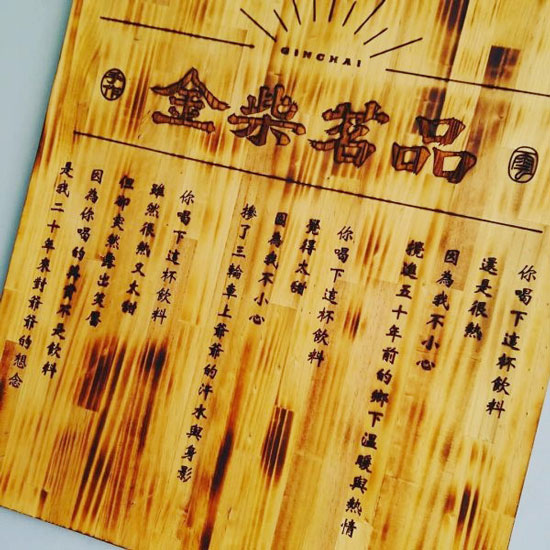 QINCHAI
金柴茗品
你喝下這杯飲料
還是很熱
因為我不小心
攪進五十年前的鄉下溫暖與熱情
你喝下這杯飲料
覺得太甜
因為我不小心
摻了三輪車上爺爺的汗水與身影
你喝下這杯飲料
雖然很熱又太甜
但卻突然露出笑容
因為你喝的其實不是飲料
是我二十年來對爺爺的想念